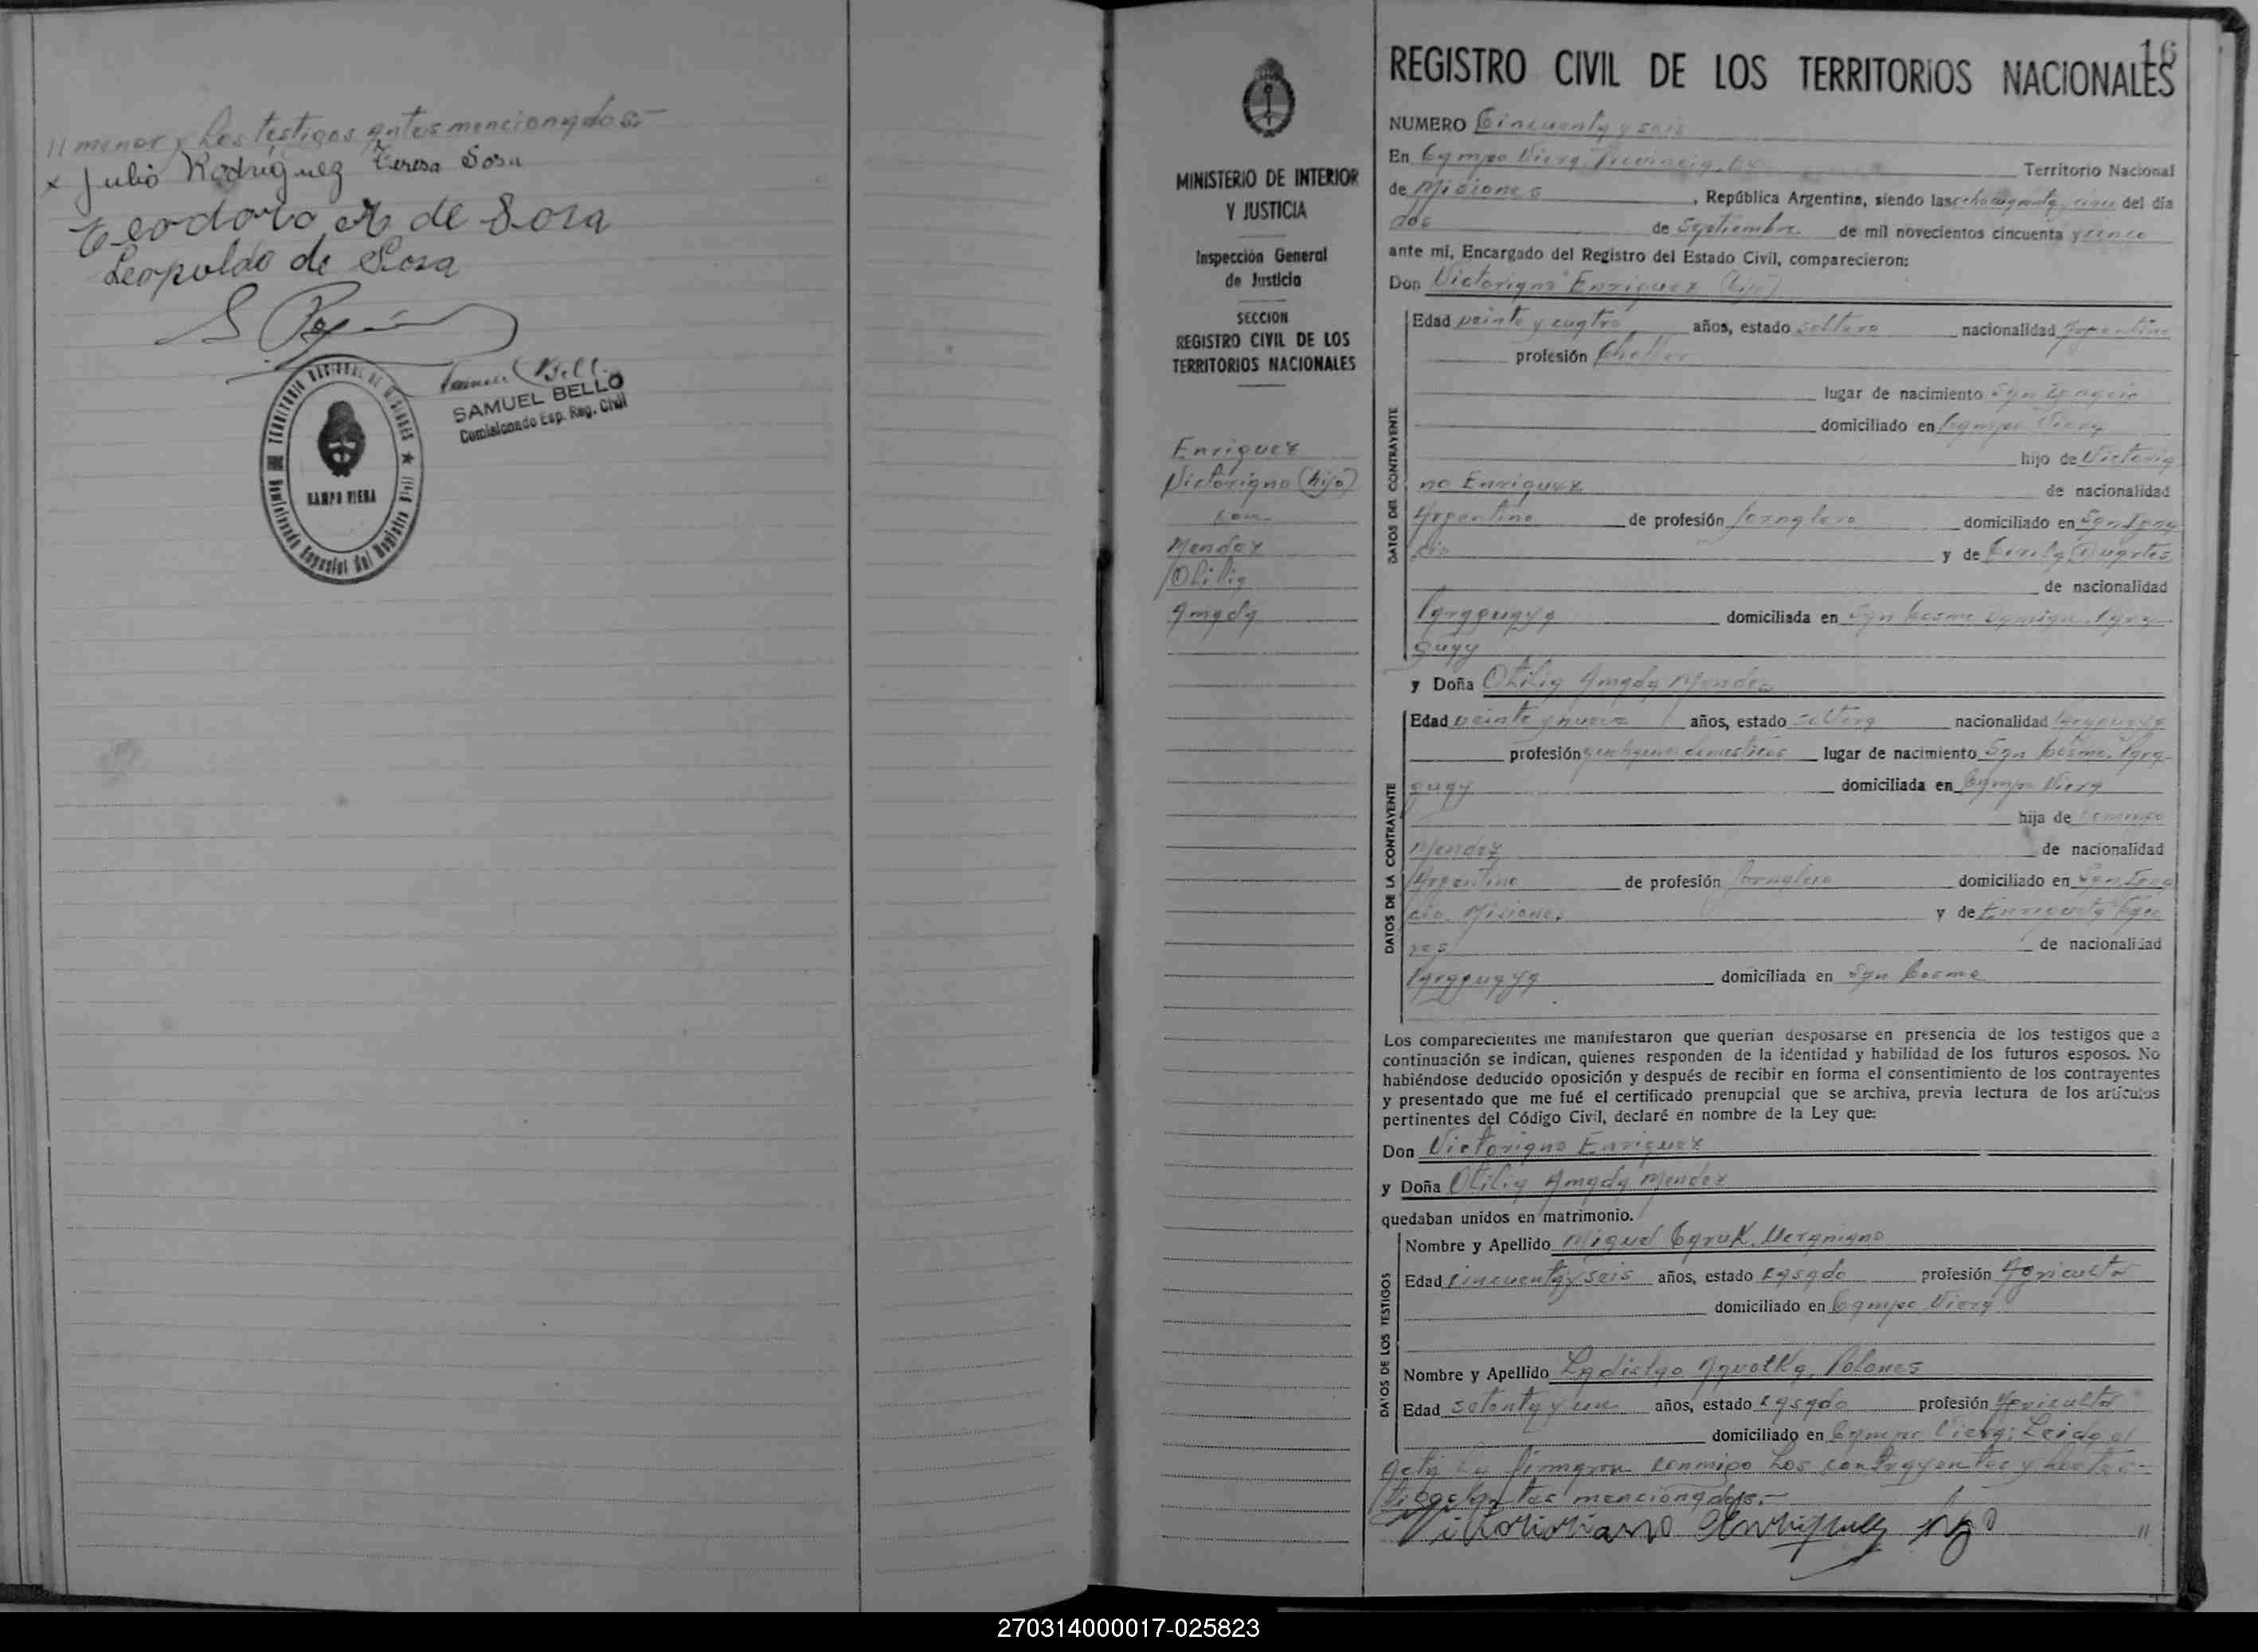 // menor y los testigos antes mencionados.—
x Julio Rodriguez Teresa Sosa
Teodoro de Sosa
Leopoldo de Sosa
TERRITORIO NACIONAL DE MISIONES
CAMPO VIERA
SAMUEL BELLO
Comisionado Esp. Reg. Civil
16
MINISTERIO DE INTERIOR
Y JUSTICIA
Inspección General
de Justicia
SECCION
REGISTRO CIVIL DE LOS
TERRITORIOS NACIONALES
Enriquez
Victoriano (hijo)
con
Mendez
Otilia
Amada
REGISTRO CIVIL DE LOS TERRITORIOS NACIONALES
NUMERO Cincuenta y seis
En Campo Viera, Provincia Territorio Nacional
de Misiones, República Argentina, siendo las del día
dos de Septiembre de mil novecientos cincuenta y cinco
ante mí, Encargado del Registro del Estado Civil, comparecieron:
Don Victoriano Enriquez (hijo)
DATOS DEL CONTRAYENTE
Edad veinte y cuatro años, estado soltero nacionalidad Argentino
profesión Choffer
lugar de nacimiento San Ignacio
domiciliado en Campo Viera
hijo de Victoria
no Enriquez de nacionalidad
Argentino de profesión Jornalero domiciliado en San Igna
cio y de Duartes
de nacionalidad
Paraguaya domiciliada en San Cosme Para
guay
y Doña Otilia Amada Mendez
DATOS DE LA CONTRAYENTE
Edad veinte y nueve años, estado soltera nacionalidad Paraguaya
profesión domesticos lugar de nacimiento San Cosme, Para
guay domiciliada en Campo Viera
hija de
Mendez de nacionalidad
Argentino de profesión Jornalero domiciliado en San Igna
cio Misiones y de Enriqueta
res de nacionalidad
Paraguaya domiciliada en San Cosme
Los comparecientes me manifestaron que querían desposarse en presencia de los testigos que a
continuación se indican, quienes responden de la identidad y habilidad de los futuros esposos. No
habiéndose deducido oposición y después de recibir en forma el consentimiento de los contrayentes
y presentado que me fué el certificado prenupcial que se archiva, previa lectura de los artículos
pertinentes del Código Civil, declaré en nombre de la Ley que:
Don Victoriano Enriquez
y Doña Otilia Amada Mendez
quedaban unidos en matrimonio.
DATOS DE LOS TESTIGOS
Nombre y Apellido Miguel
Edad cincuenta y seis años, estado casado profesión Agricultor
domiciliado en Campo Viera
Nombre y Apellido Ladislao Polones
Edad setenta y un años, estado casado profesión Agricultor
domiciliado en Campo Viera; Leida el
acta la firmaron conmigo los contrayentes y los tes-
tigos antes mencionados.—
Enriquez hijo
//
270314000017-025823